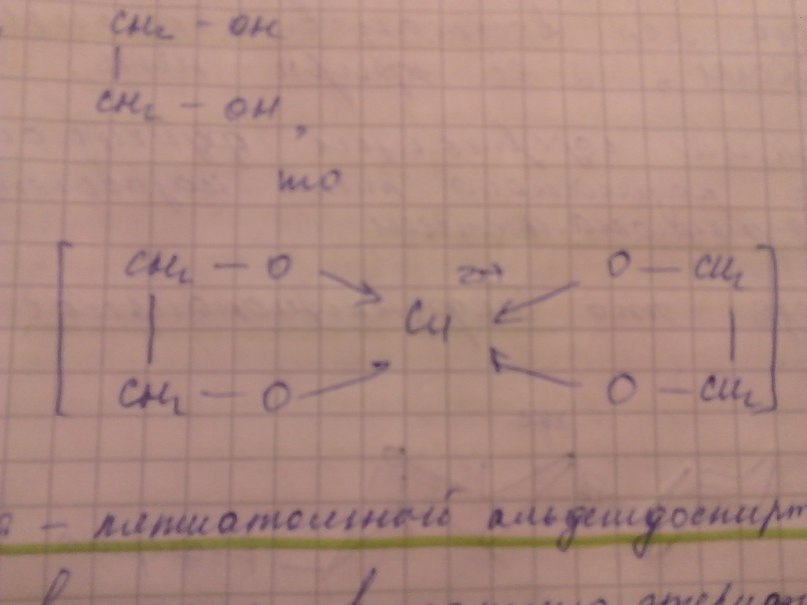 CH2 - OH
|
CH2 - OH,
то
[ CH2 - O → Cu 2+ ← O - CH2 ]
| |
CH2 - O → ← O - CH2
- пятиатомный альдегидоспирт